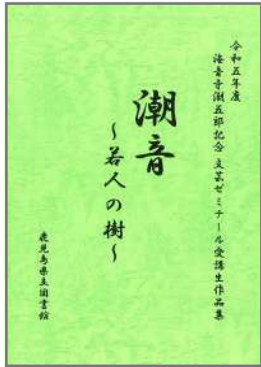 令和五年度
海音寺潮五郎記念 文芸ゼミナール受講生作品集
潮音
~若人の樹~
鹿児島県立図書館